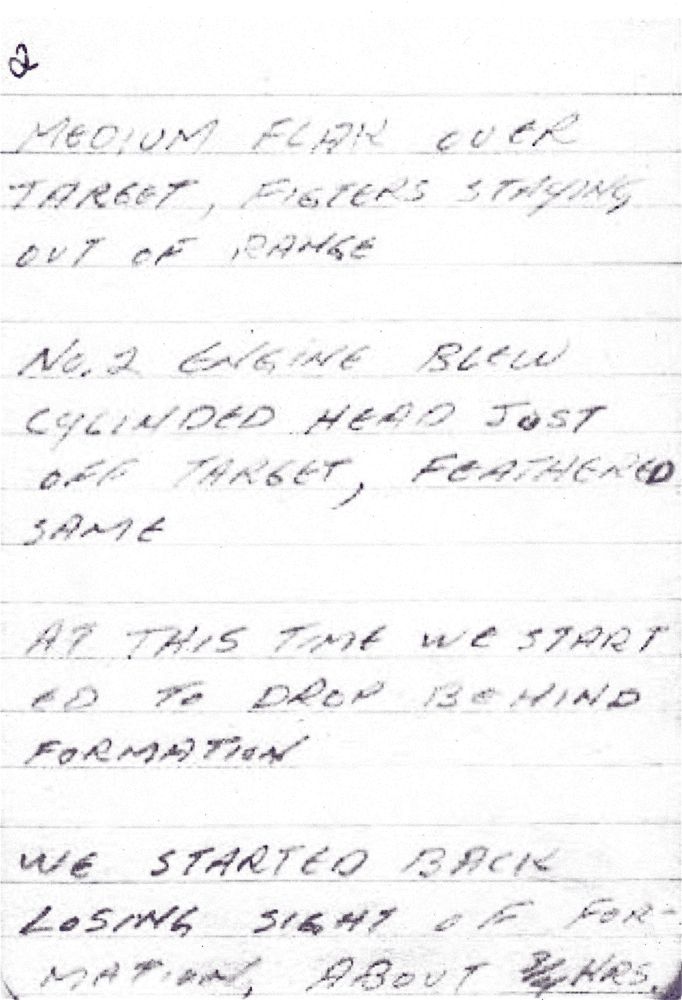 2
MEDIUM FLAK OVER
TARGET, FIGTERS STAYING
OUT OF RANGE
NO. 2 ENGINE BLEW
CYLINDED HEAD JUST
OFF TARGET, FEATHERED
SAME
AT THIS TIME WE START
ED TO DROP BEHIND
FORMATION
WE STARTED BACK
LOSING SIGHT OF FOR-
MATION, ABOUT 3/4 HRS.